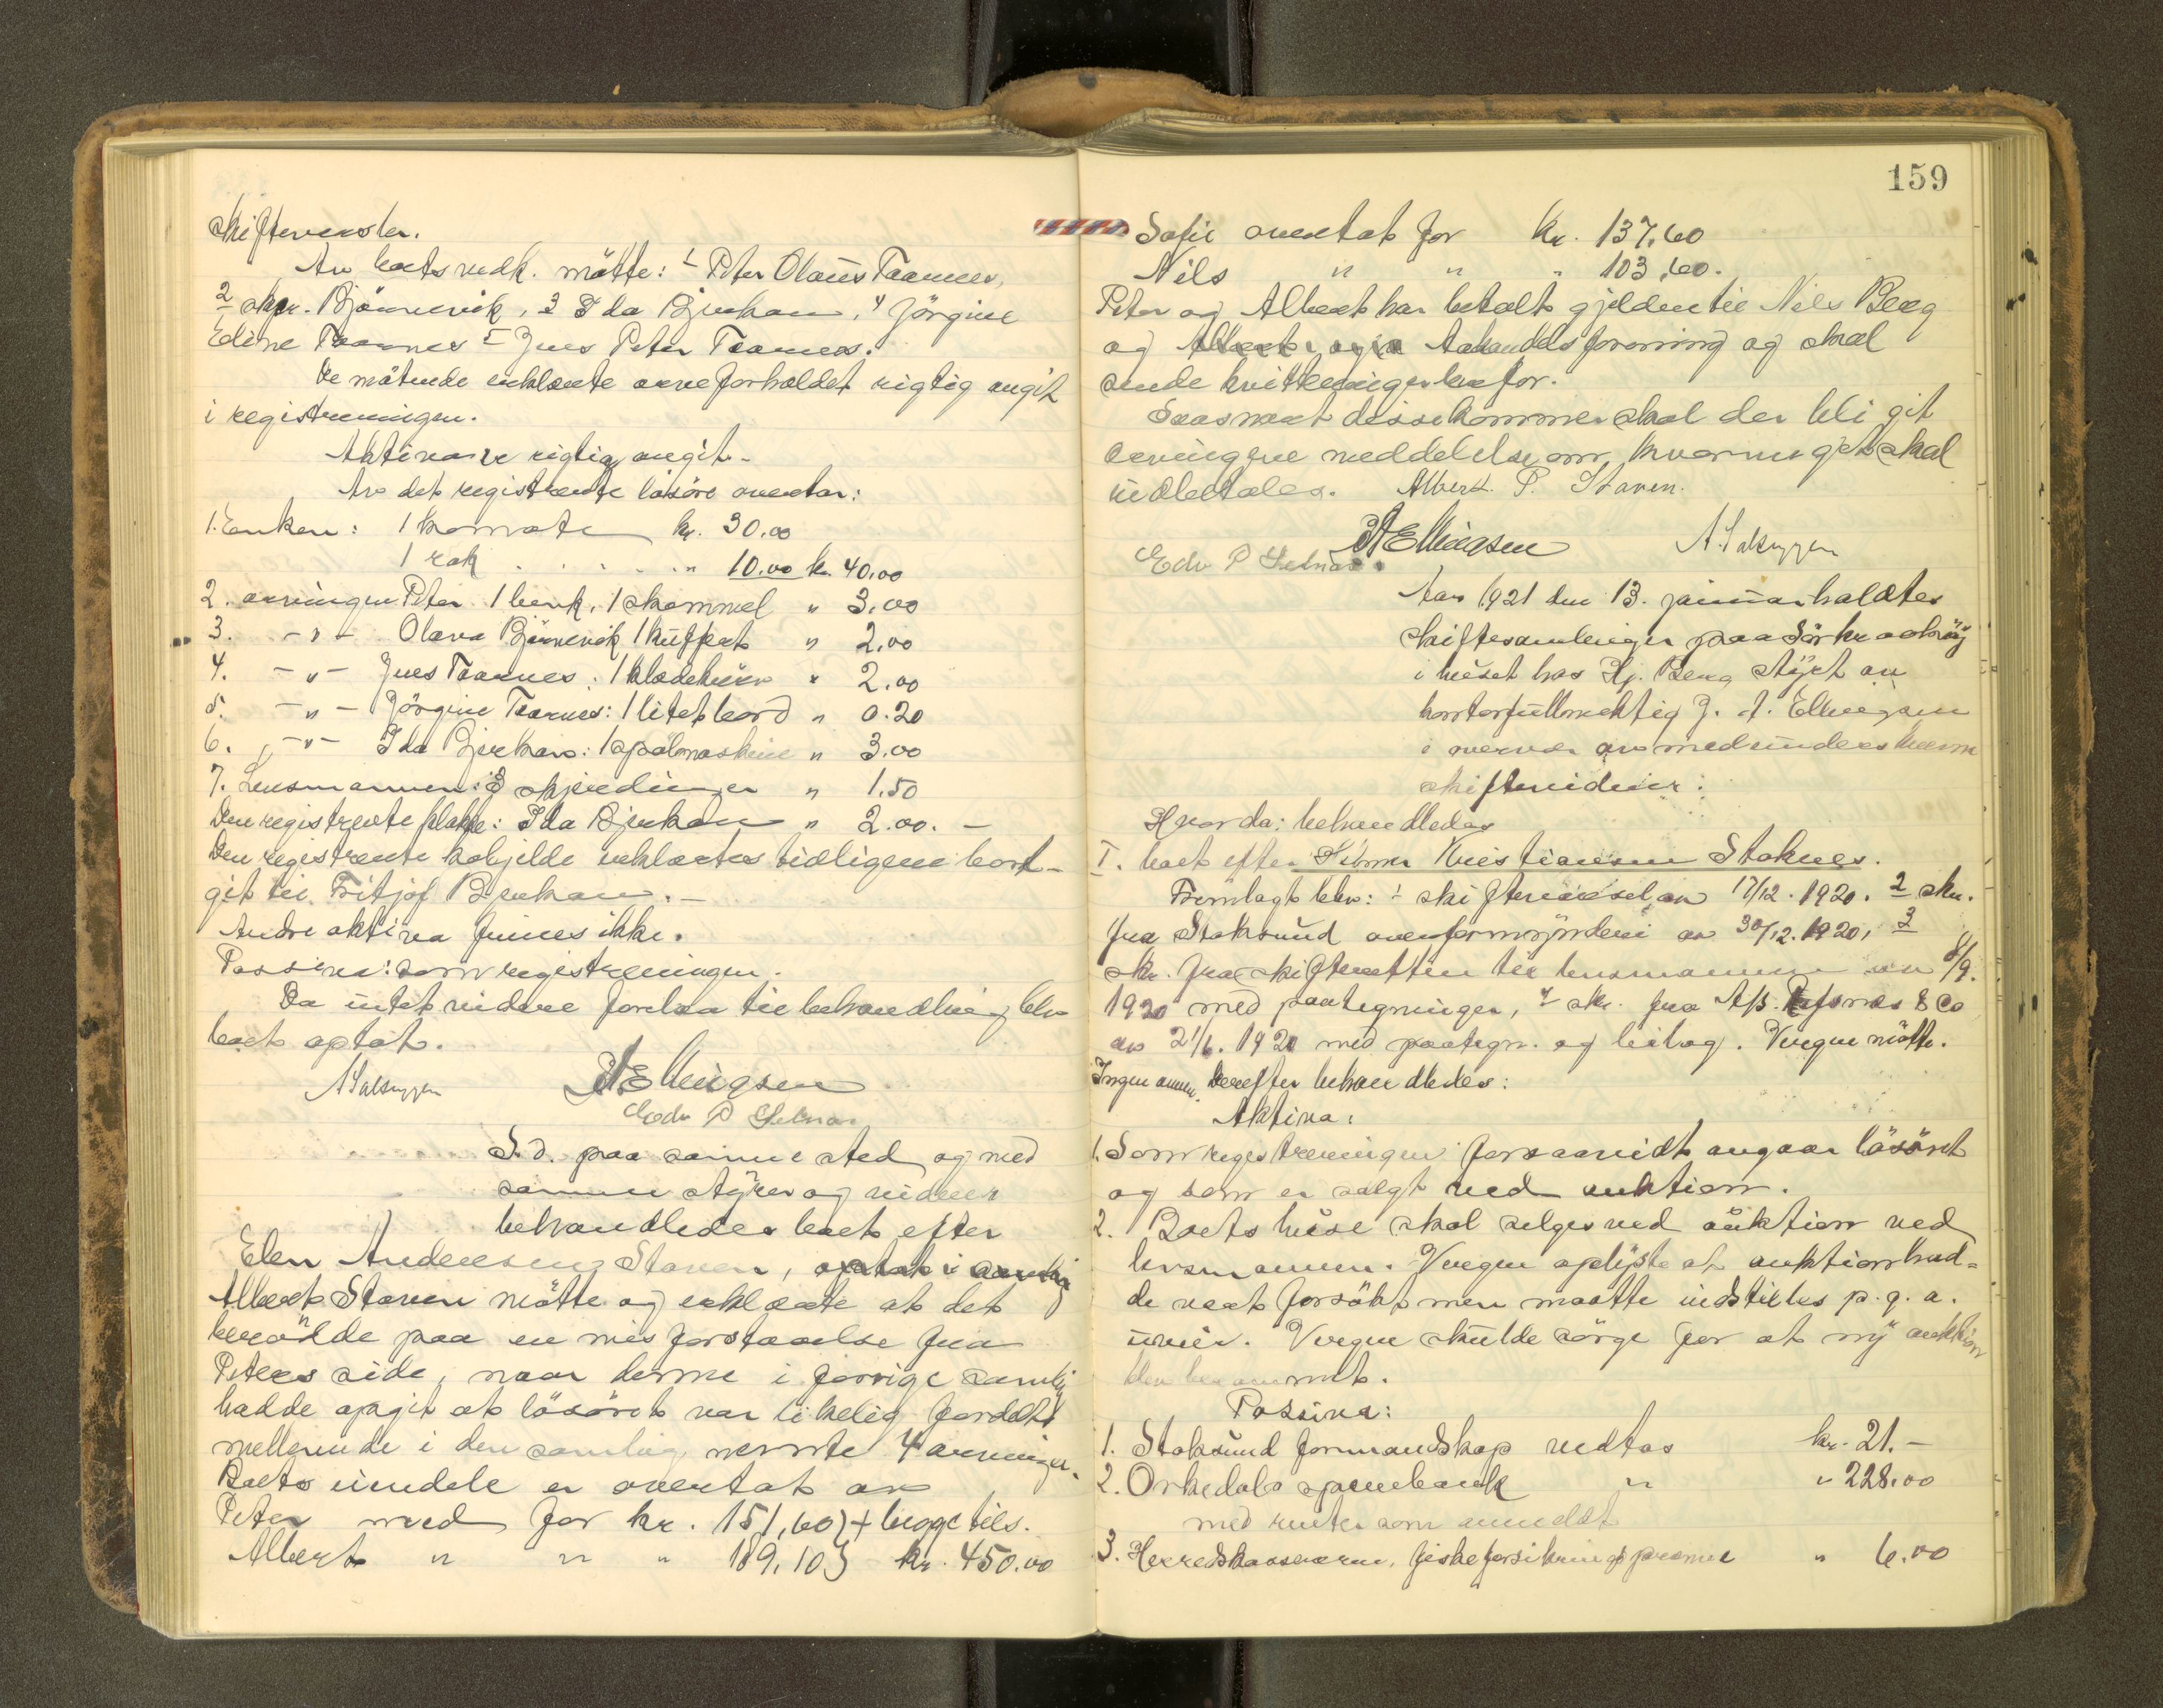 skiftevæsler.
Av boets vedk. mötte: 1 Peter Olaus Taarnes,
2 skpr. Björnevik, 3 Ida Bjerkan, 4 Jörgine
Edine Taarnes 5 Jens Peter Taarnes.
De mötende erklærte arveforholdet rigtig angit
i registreringen.
Aktiva er rigtig angit.
Av det registrerte lösöre overtar:
1. Enken: 1 komode kr. 30.00
1 rok . . . . . " 10.00 kr. 40.00
2. arvingen Peter 1 benk, 1 skammel " 3.00
3. - " - Olava Björnevik 1 kuffert " 2.00
4. - " - Jens Taarnes: 1 klædekurv " 2.00
5. - " - Jörgine Taarnes: 1 litet bord " 0.20
6. - " - Ida Bjerkan: 1 spolmaskine " 3.00
7. Lensmannen: 3 skjeedinger " 1.50
Den registrerte klokke: Ida Bjerkan " 2.00. -
Den registrerte kobjelde erklærtes tidligere bort-
git til Fritjof Bjerkan. -
Andre aktiva finnes ikke.
Passiva: som registreringen.
Da intet videre forelaa til behandling blev
boet optat.
A Salsuggen JAEllingsen
Edv P Selnas
S. d. paa samme sted og med
samme styrer og vidner
behandledes boet efter
Elen Andersens Staven,
Albert Staven mötte og erklærte at det
berodde paa en misforstaaelse fra
Peters side, naar denne i forrige samling
hadde opgit at lösöret var likelig fordelt
mellem de i den samling nevnte 4 arvinger.
Boets eiendele er overtat av
Peter med for kr. 151,60 } + begge tils.
Albert " " " 189,10 } kr. 450.00
159
Sofie overtat for kr. 137,60
Nils " " " 103,60.
Peter og Albert har betalt gjelden til Nils Berg
og Aahandelsforening og skal
sende kvitteringer herfor.
Saasnart disse kommer skal der bli git
arvingene meddelelse om, hvormeget skal
utbetales. Albert. P. Staven.
JAEllingsen A. Salsuggen
Edv P Selnas
Aar 1921 den 13. januar holdtes
skiftesamlinger paa Sörkraaköy
i huset hos Hj. Berg styrt av
kontorfullmektig J. A. Ellingsen
i overvær av medundertegnede
skiftevidner:
Hvorda: behandledes
I. boet efter Kristiansen Stoknes.
Fremlagt blev: 1 skiftevæsel av 17/12. 1920. 2 skr.
fra Stoksund overformynderi av 30/12. 1920, 3
skr. fra skifteretten til lensmannen av 8/9.
1920 med paategninger, 4 skr. fra A/S. & Co
av 21/6. 1920 med paategn. og bilag. Vergen mötte.
Ingen annen. Derefter behandledes:
Aktiva:
1. Som registreringen forsaavidt angaar lösöret
og som er solgt ved auktion.
2. Boets huse skal selges ved auktion ved
lensmannen. Vergen oplyste at auktion had-
de vært forsökt men maatte indstilles p. g. a.
uveir. Vergen skulde sörge for at ny auktion
blev berammet.
Passiva:
1. Stoksund formandskap vedtas kr. 21.-
2. Orkedals sparebank " " 228.00
med renter som anmeldt
3. Herredskassereren, fiskeforsikringspremie " 6.00